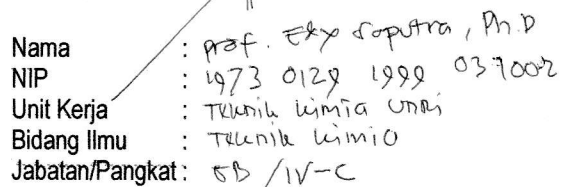 Nama : Prof. Edy Saputra, Ph.D
NIP : 1973 0129 1999 031002
Unit Kerja : Teknik Kimia UNRI
Bidang Ilmu : Teknik Kimia
Jabatan/Pangkat : GB / IV-C